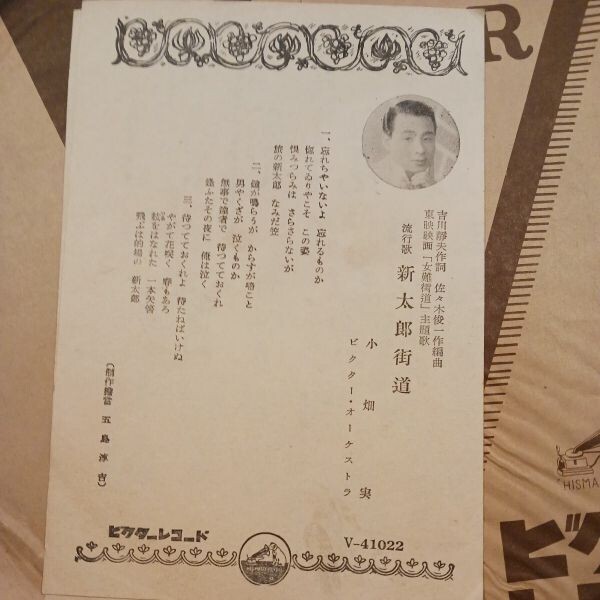 吉川静夫作詞 佐々木俊一作編曲
東映映画「女難街道」主題歌
流行歌 新太郎街道
小畑実
ビクター・オーケストラ
一、忘れちやいないよ 忘れるものか
惚れてゐりやこそ この姿
恨みつらみは さらさらないが
旅の新太郎 なみだ笠
二、鐘が鳴らうが からすが啼こと
男やくざが 泣くものか
無事で達者で 待つてておくれ
逢ふたその夜に 俺は泣く
三、待つてておくれよ 待たねばいけぬ
やがて花咲く 春もあろ
絃をはなれた 一本矢筈
飛ぶは的場の 新太郎
(制作担当 五島淳吉)
ビクターレコード
V-41022
R
HISMA
ビク